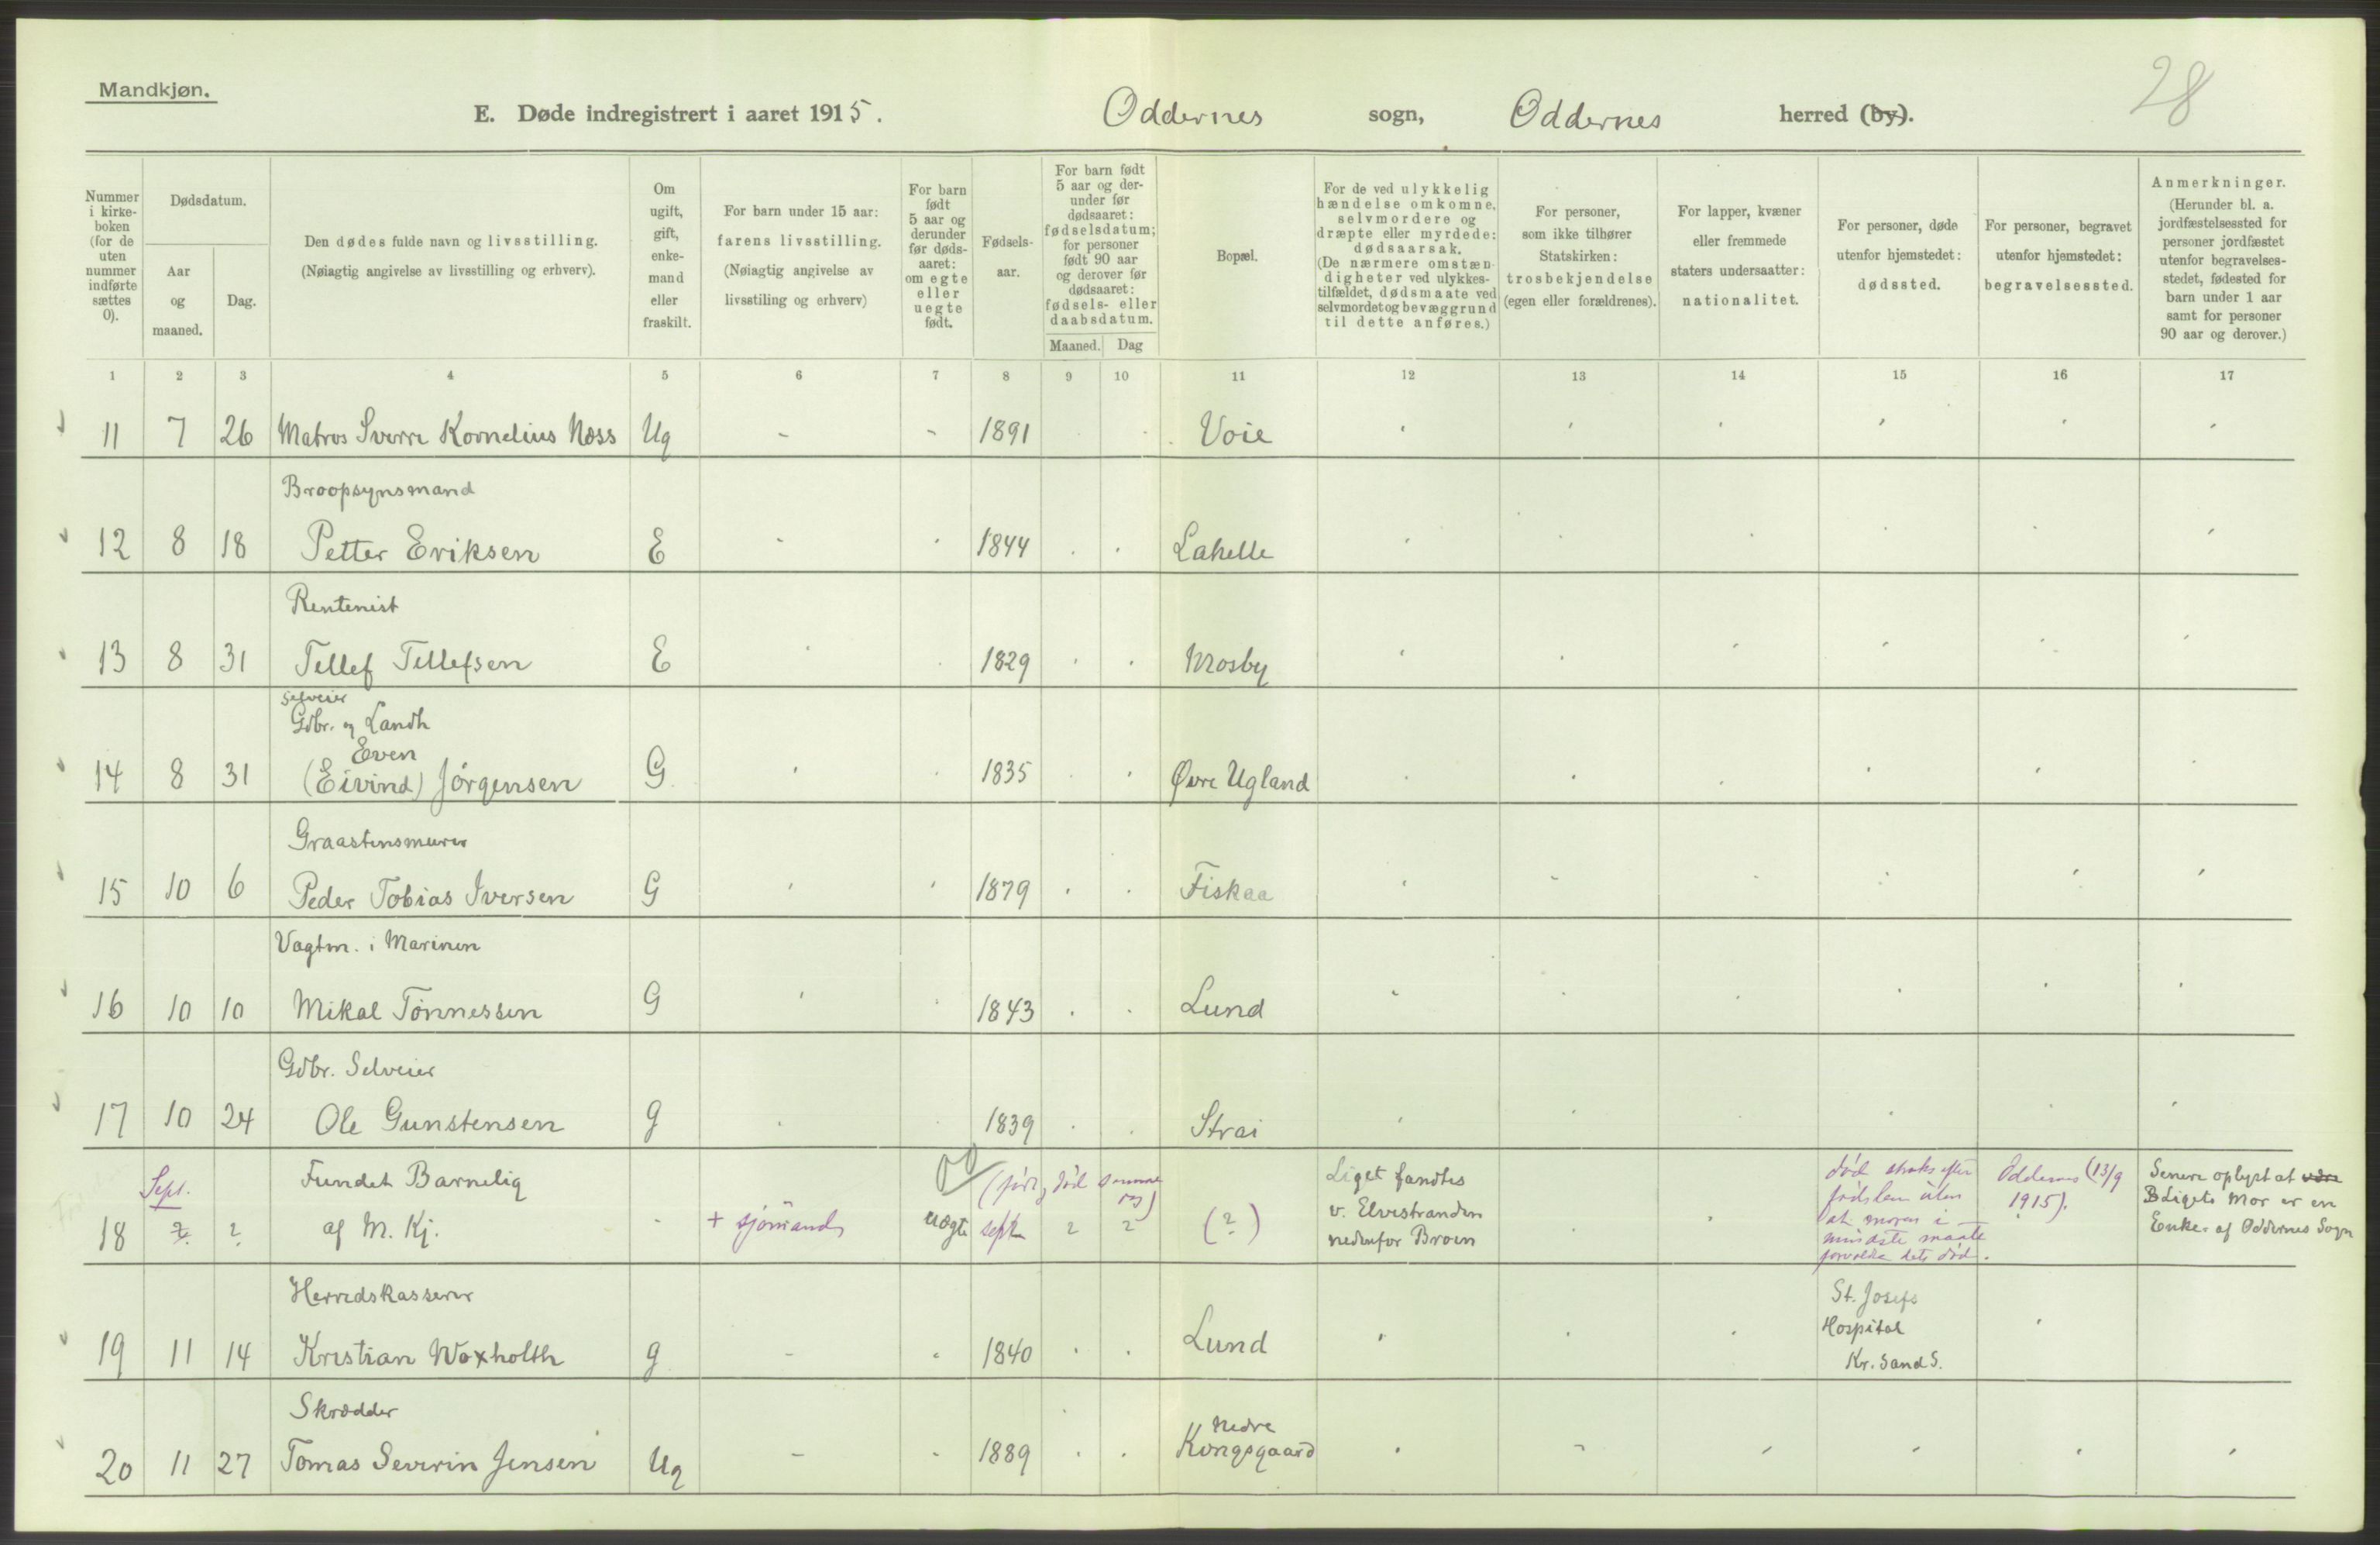 Mandkjøn.
28
E. Døde indregistrert i aaret 1915. Oddernes sogn, Oddernes herred (by).
Nummer i kirke-boken (for de uten nummer indførte sættes 0).
Dødsdatum.
Aar og maaned.
Dag.
Den dødes fulde navn og livsstilling.
(Nøiagtig angivelse av livsstilling og erhverv).
Om ugift, gift, enke-mand eller fraskilt.
For barn under 15 aar: farens livsstilling.
(Nøiagtig angivelse av livsstiling og erhverv)
For barn født 5 aar og derunder før døds-aaret: om egte eller uegte født.
Fødsels-aar.
For barn født 5 aar og der-under før dødsaaret: fødselsdatum; for personer født 90 aar og derover før dødsaaret: fødsels- eller daabsdatum.
Maaned. Dag
Bopæl.
For de ved ulykkelig hændelse omkomne, selvmordere og dræpte eller myrdede: dødsaarsak.
(De nærmere omstæn-digheter ved ulykkes-tilfældet, dødsmaate ved selvmordet og bevæggrund til dette anføres.)
For personer, som ikke tilhører Statskirken: trosbekjendelse (egen eller forældrenes).
For lapper, kvæner eller fremmede staters undersaatter: nationalitet.
For personer, døde utenfor hjemstedet: dødssted.
For personer, begravet utenfor hjemstedet: begravelsessted.
Anmerkninger.
(Herunder bl. a. jordfæstelsessted for personer jordfæstet utenfor begravelses-stedet, fødested for barn under 1 aar samt for personer 90 aar og derover.)
1 2 3 4 5 6 7 8 9 10 11 12 13 14 15 16 17
11 7 26 Matros Sverre Kornelius Næss Ug - - 1891 Voie
Broopsynsmand
12 8 18 Petter Eriksen E 1844 Lahelle
Rentenist
13 8 31 Tellef Tellefsen E 1829 Mosby
Selveier
Gdbr. og Landh
Even
14 8 31 (Eivind) Jørgensen G 1835 Øvre Ugland
Graastensmurer
15 10 6 Peder Tobias Iversen G 1879 Fiskaa
Vagtm. i Marinen
16 10 10 Mikal Tønnessen G 1843 Lund
Gdbr. Selveier
17 10 24 Ole Gunstensen g 1839 Strai
Sept.
Fundet Barnelig
18 ? ? af M. Kj. - + sjømand uægte sept 2 2 (?)
(født, død samme dag)
Liget fandtes
v. Elvestranden
nedenfor Broen
død straks efter
fødslen uten
at moren i
mindste maate
forvoldte dets død.
Oddernes (13/9
1915).
Senere oplyst at være
Ligets Mor er en
Enke af Oddernes Sogn
Herredskasserer
19 11 14 Kristian Woxholth g - 1840 Lund
St. Josefs
Hospital
Kr. Sand S.
Skrædder
20 11 27 Tomas Severin Jensen Ug - - 1889
Nedre
Kongsgaard